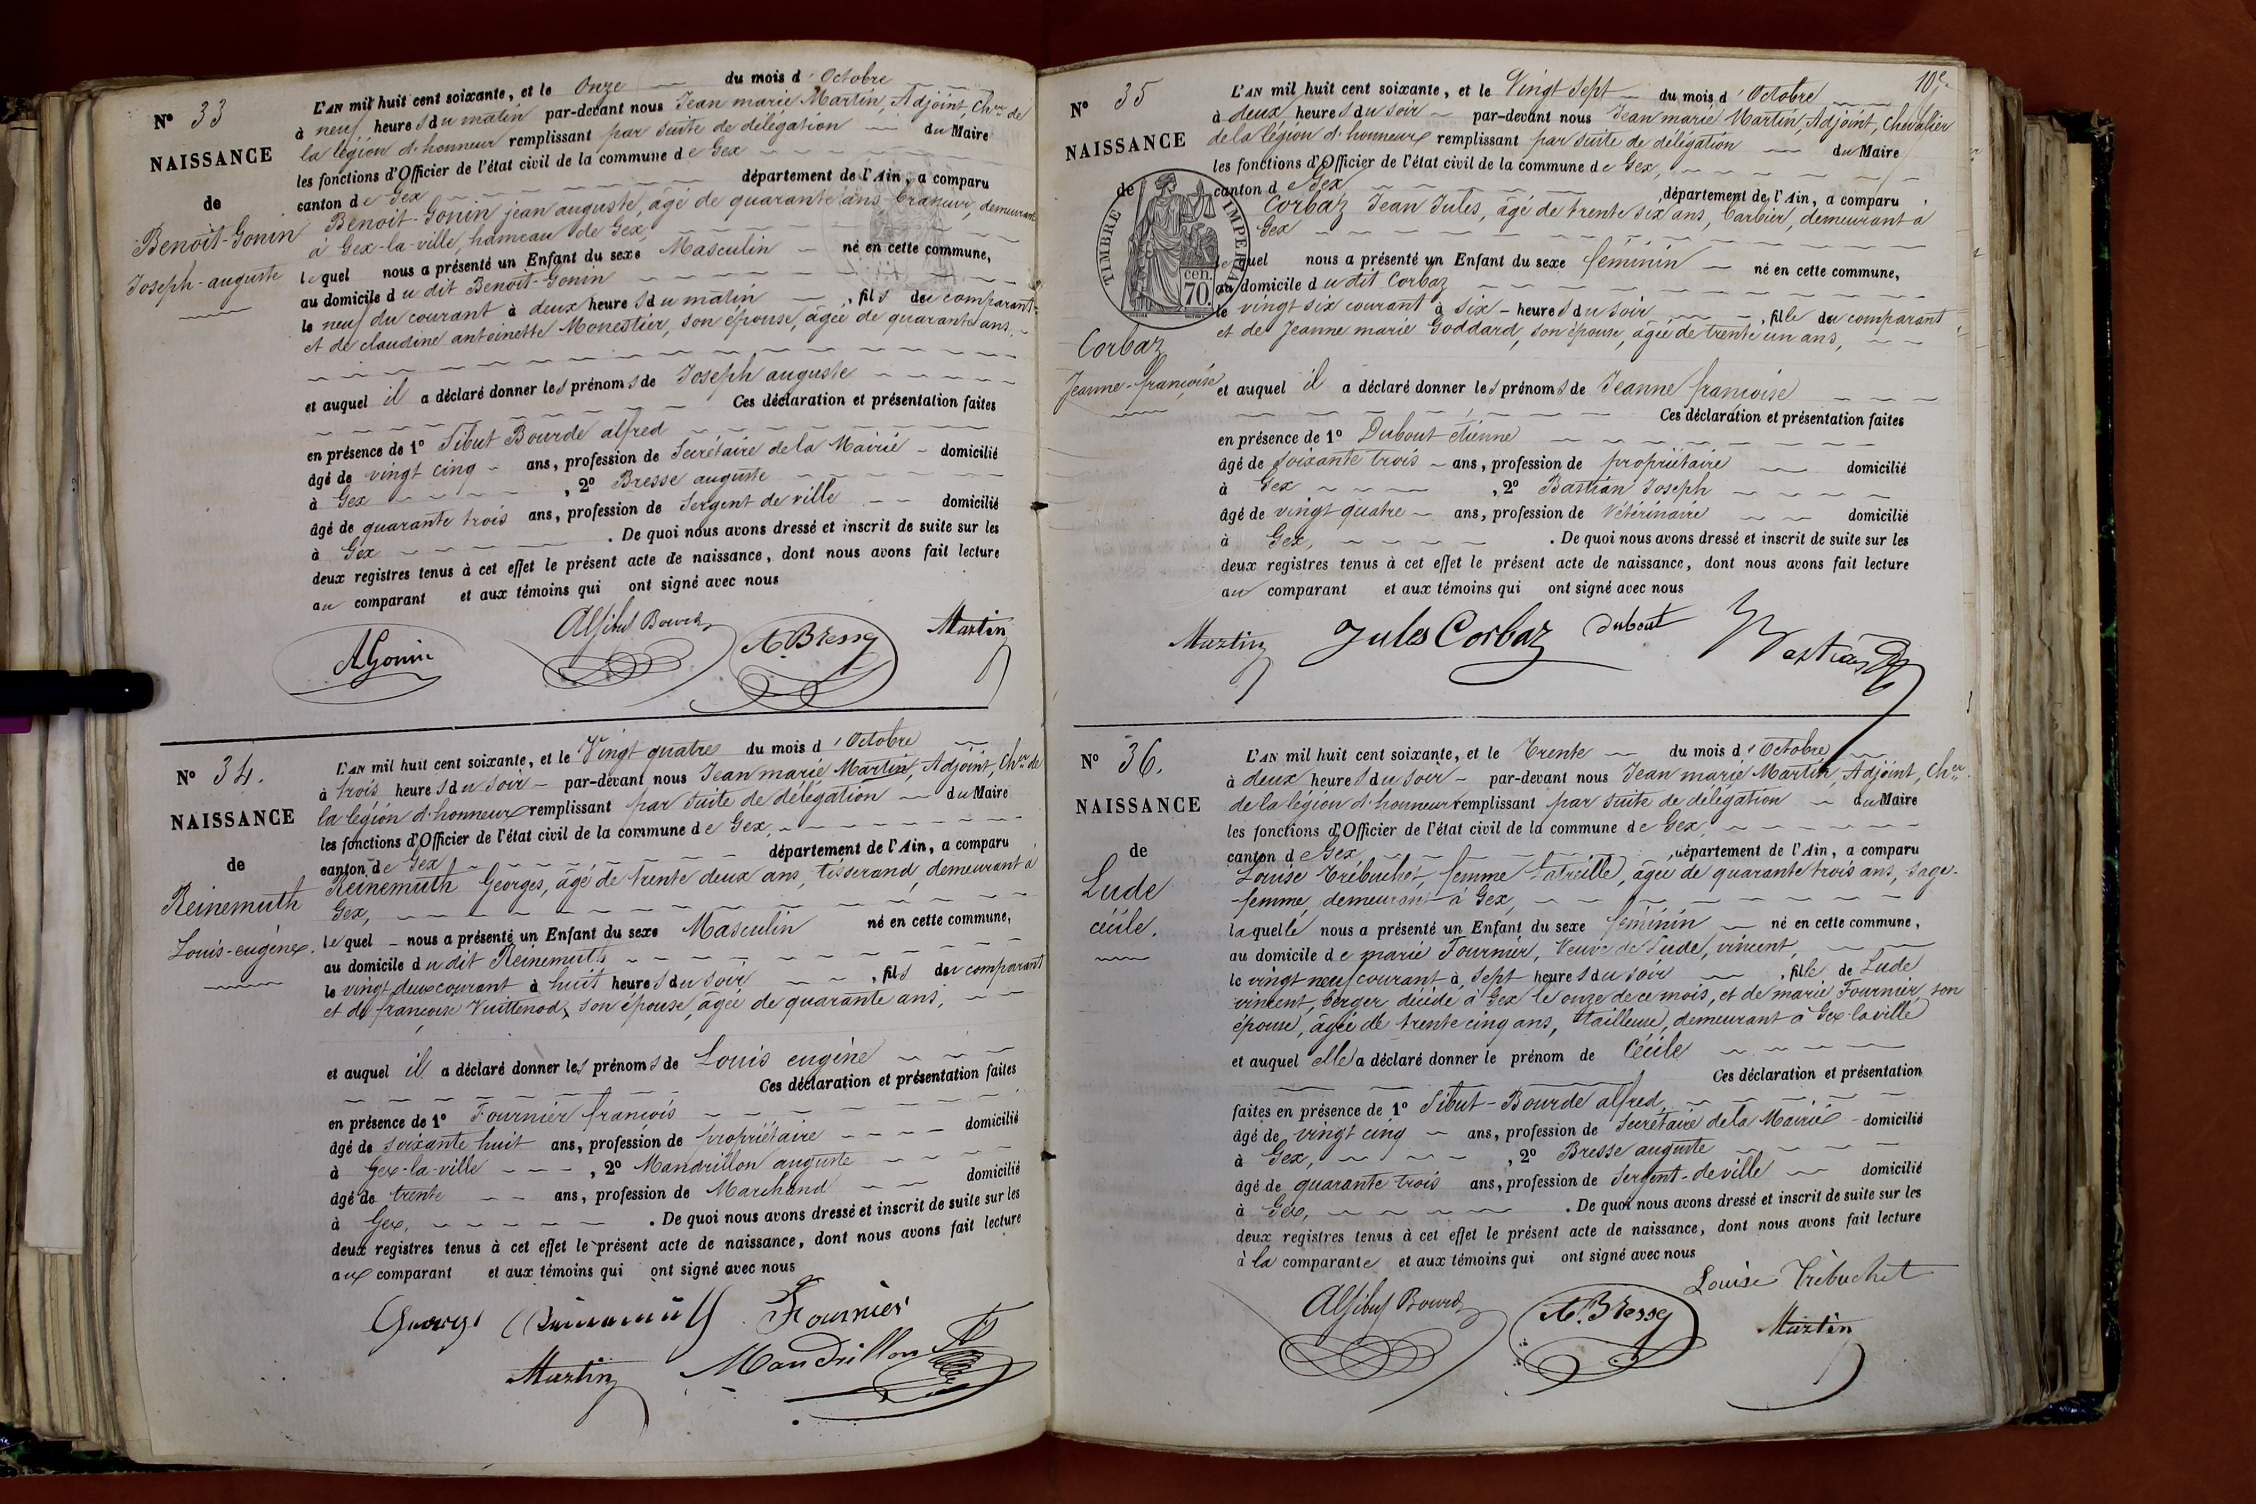 N° 33
NAISSANCE
de
Benoît-Gonin
Joseph-auguste
L'AN mil huit cent soixante, et le Onze du mois d'Octobre
à neuf heures du matin par-devant nous Jean marie Martin, Adjoint, Cher de
la légion d'honneur remplissant par suite de délégation du Maire
les fonctions d'Officier de l'état civil de la commune de Gex
canton de Gex département de l'Ain, a comparu
Benoit-Gonin jean auguste, âgé de quarante ans, demeurant
à Gex-la-ville, hameau de Gex,
lequel nous a présenté un Enfant du sexe Masculin né en cette commune,
au domicile du dit Benoit-Gonin
le neuf du courant à deux heures du matin, fils du comparant
et de claudine antoinette Monestier, son épouse, âgée de quarante ans,
et auquel il a déclaré donner les prénoms de Joseph auguste
Ces déclaration et présentation faites
en présence de 1° Sibut Bourde alfred
âgé de vingt cinq ans, profession de Secrétaire de la Mairie domicilié
à Gex, 2° Bresse auguste
âgé de quarante trois ans, profession de Sergent de ville domicilié
à Gex. De quoi nous avons dressé et inscrit de suite sur les
deux registres tenus à cet effet le présent acte de naissance, dont nous avons fait lecture
au comparant et aux témoins qui ont signé avec nous
AGonin ASibut Bourde A. Bresse Martin
N° 34.
NAISSANCE
de
Reinemuth
Louis-eugène.
L'AN mil huit cent soixante, et le Vingt quatre du mois d'Octobre
à trois heures du soir par-devant nous Jean marie Martin, Adjoint, Cher de
la légion d'honneur remplissant par suite de délégation du Maire
les fonctions d'Officier de l'état civil de la commune de Gex,
canton de Gex département de l'Ain, a comparu
Reinemuth Georges, âgé de trente deux ans, tisserand, demeurant à
Gex,
lequel nous a présenté un Enfant du sexe Masculin né en cette commune,
au domicile du dit Reinemuth
le vingt deux courant à huit heures du soir, fils du comparant
et de françoise Vuittenod, son épouse, âgée de quarante ans,
et auquel il a déclaré donner les prénoms de Louis eugène
Ces déclaration et présentation faites
en présence de 1° Fournier françois
âgé de soixante huit ans, profession de propriétaire domicilié
à Gex-la-ville, 2° Mandrillon auguste
âgé de trente ans, profession de Marchand domicilié
à Gex, . De quoi nous avons dressé et inscrit de suite sur les
deux registres tenus à cet effet le présent acte de naissance, dont nous avons fait lecture
au comparant et aux témoins qui ont signé avec nous
Georges Reinemuth Fournier
Martin Mandrillon
10e
N° 35
NAISSANCE
de
TIMBRE IMPERIAL
cen.
70.
Corbaz
Jeanne-françoise
L'AN mil huit cent soixante, et le Vingt Sept du mois d'Octobre
à deux heures du soir par-devant nous Jean marie Martin, Adjoint, Chevalier
de la légion d'honneur remplissant par suite de délégation du Maire
les fonctions d'Officier de l'état civil de la commune de Gex,
canton de Gex, département de l'Ain, a comparu
Corbaz Jean Jules, âgé de trente six ans, barbier, demeurant à
Gex
lequel nous a présenté un Enfant du sexe féminin né en cette commune,
au domicile du dit Corbaz
le vingt six courant à six heures du soir, fille du comparant
et de Jeanne marie Goddard, son épouse, âgée de trente un ans,
et auquel il a déclaré donner les prénoms de Jeanne françoise
Ces déclaration et présentation faites
en présence de 1° Dubout etienne
âgé de soixante trois ans, profession de propriétaire domicilié
à Gex, 2° Bastian Joseph
âgé de vingt quatre ans, profession de Vétérinaire domicilié
à Gex, . De quoi nous avons dressé et inscrit de suite sur les
deux registres tenus à cet effet le présent acte de naissance, dont nous avons fait lecture
au comparant et aux témoins qui ont signé avec nous
Martin Jules Corbaz Dubout Bastian
N° 36.
NAISSANCE
de
Lude
cécile.
L'AN mil huit cent soixante, et le Trente du mois d'Octobre
à deux heures du soir par-devant nous Jean marie Martin, Adjoint, Cher
de la légion d'honneur remplissant par suite de délégation du Maire
les fonctions d'Officier de l'état civil de la commune de Gex,
canton de Gex, département de l'Ain, a comparu
Louise Trébuchet, femme Latreille, âgée de quarante trois ans, sage-
-femme, demeurant à Gex,
laquelle nous a présenté un Enfant du sexe féminin né en cette commune,
au domicile de marie Fournier, Veuve de Lude, vincent,
le vingt neuf courant à sept heures du soir, fille de Lude
vincent, berger décédé à Gex le onze de ce mois, et de marie Fournier, son
épouse, âgée de trente cinq ans, tailleuse, demeurant à Gex-la-ville
et auquel elle a déclaré donner le prénom de Cécile
Ces déclaration et présentation
faites en présence de 1° Sibut-Bourde alfred,
âgé de vingt cinq ans, profession de Secrétaire de la Mairie domicilié
à Gex, , 2° Bresse auguste
âgé de quarante trois ans, profession de Sergent-de ville domicilié
à Gex, . De quoi nous avons dressé et inscrit de suite sur les
deux registres tenus à cet effet le présent acte de naissance, dont nous avons fait lecture
à la comparante et aux témoins qui ont signé avec nous
Louise Trébuchet
ASibut Bourde A. Bresse Martin